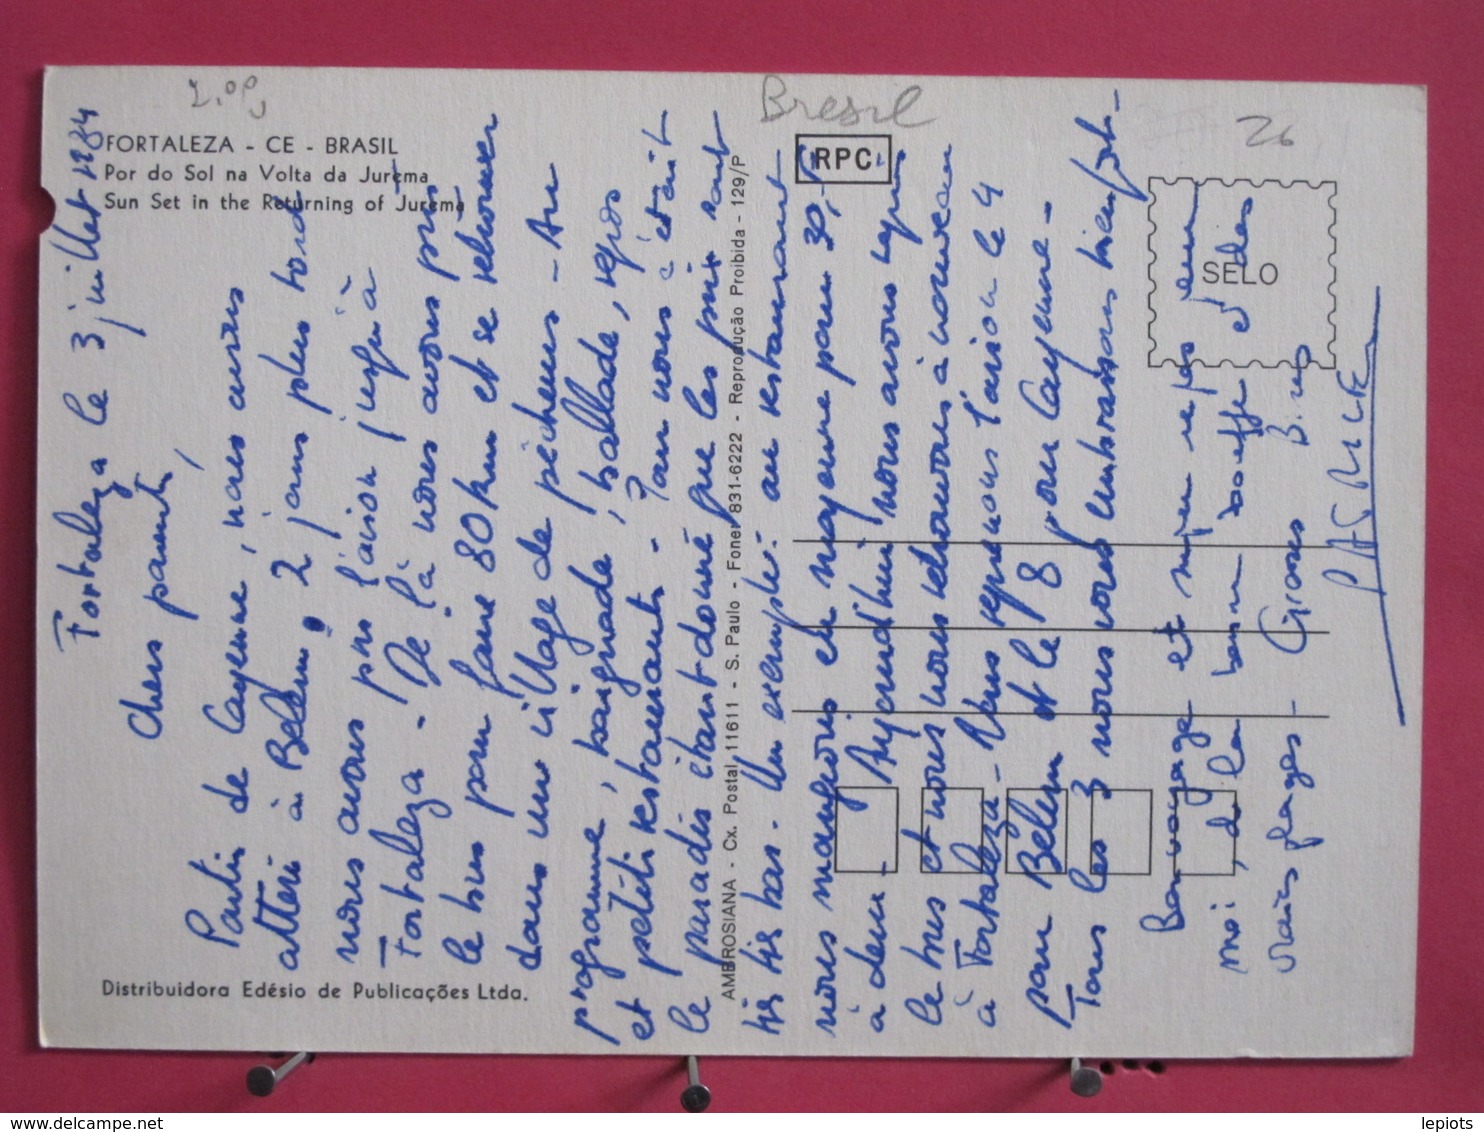 2.op
Bresil
26
FORTALEZA - CE - BRASIL
Por do Sol na Volta da Jurema
Sun Set in the Returning of Jurema
RPC
SELO
Distribuidora Edésio de Publicações Ltda.
AMBROSIANA - Cx. Postal 11611 - S. Paulo - Fone: 831-6222 - Reprodução Proibida - 129/P
Fortaleza le 3 juillet 1984
Chers parents,
Partis de Cayenne, nous avons
atterri à Belem. 2 jours plus tard
nous avons pris l'avion jusqu'à
Fortaleza - De là nous avons pris
le bus pour faire 80 km et se retrouver
dans un village de pêcheurs - Au
programme, baignade, ballade, repos
et petits restaurants - Pour nous c'était
le paradis étant donné que les prix sont
très très bas. Un exemple: au restaurant
nous mangions en moyenne pour 30,-F
à deux - Aujourd'hui nous avons repris
le bus et nous nous retrouvons à nouveau
à Fortaleza - Nous reprenons l'avion le 4
pour Belem et le 8 pour Cayenne -
Tous les 3 nous vous embrassons bien fort -
Bon voyage et
moi, de la bonne bouffe et des
vraies plages - Grosses Bises
PATRICE
AMBROSIANA
delcampe.net
lepiots